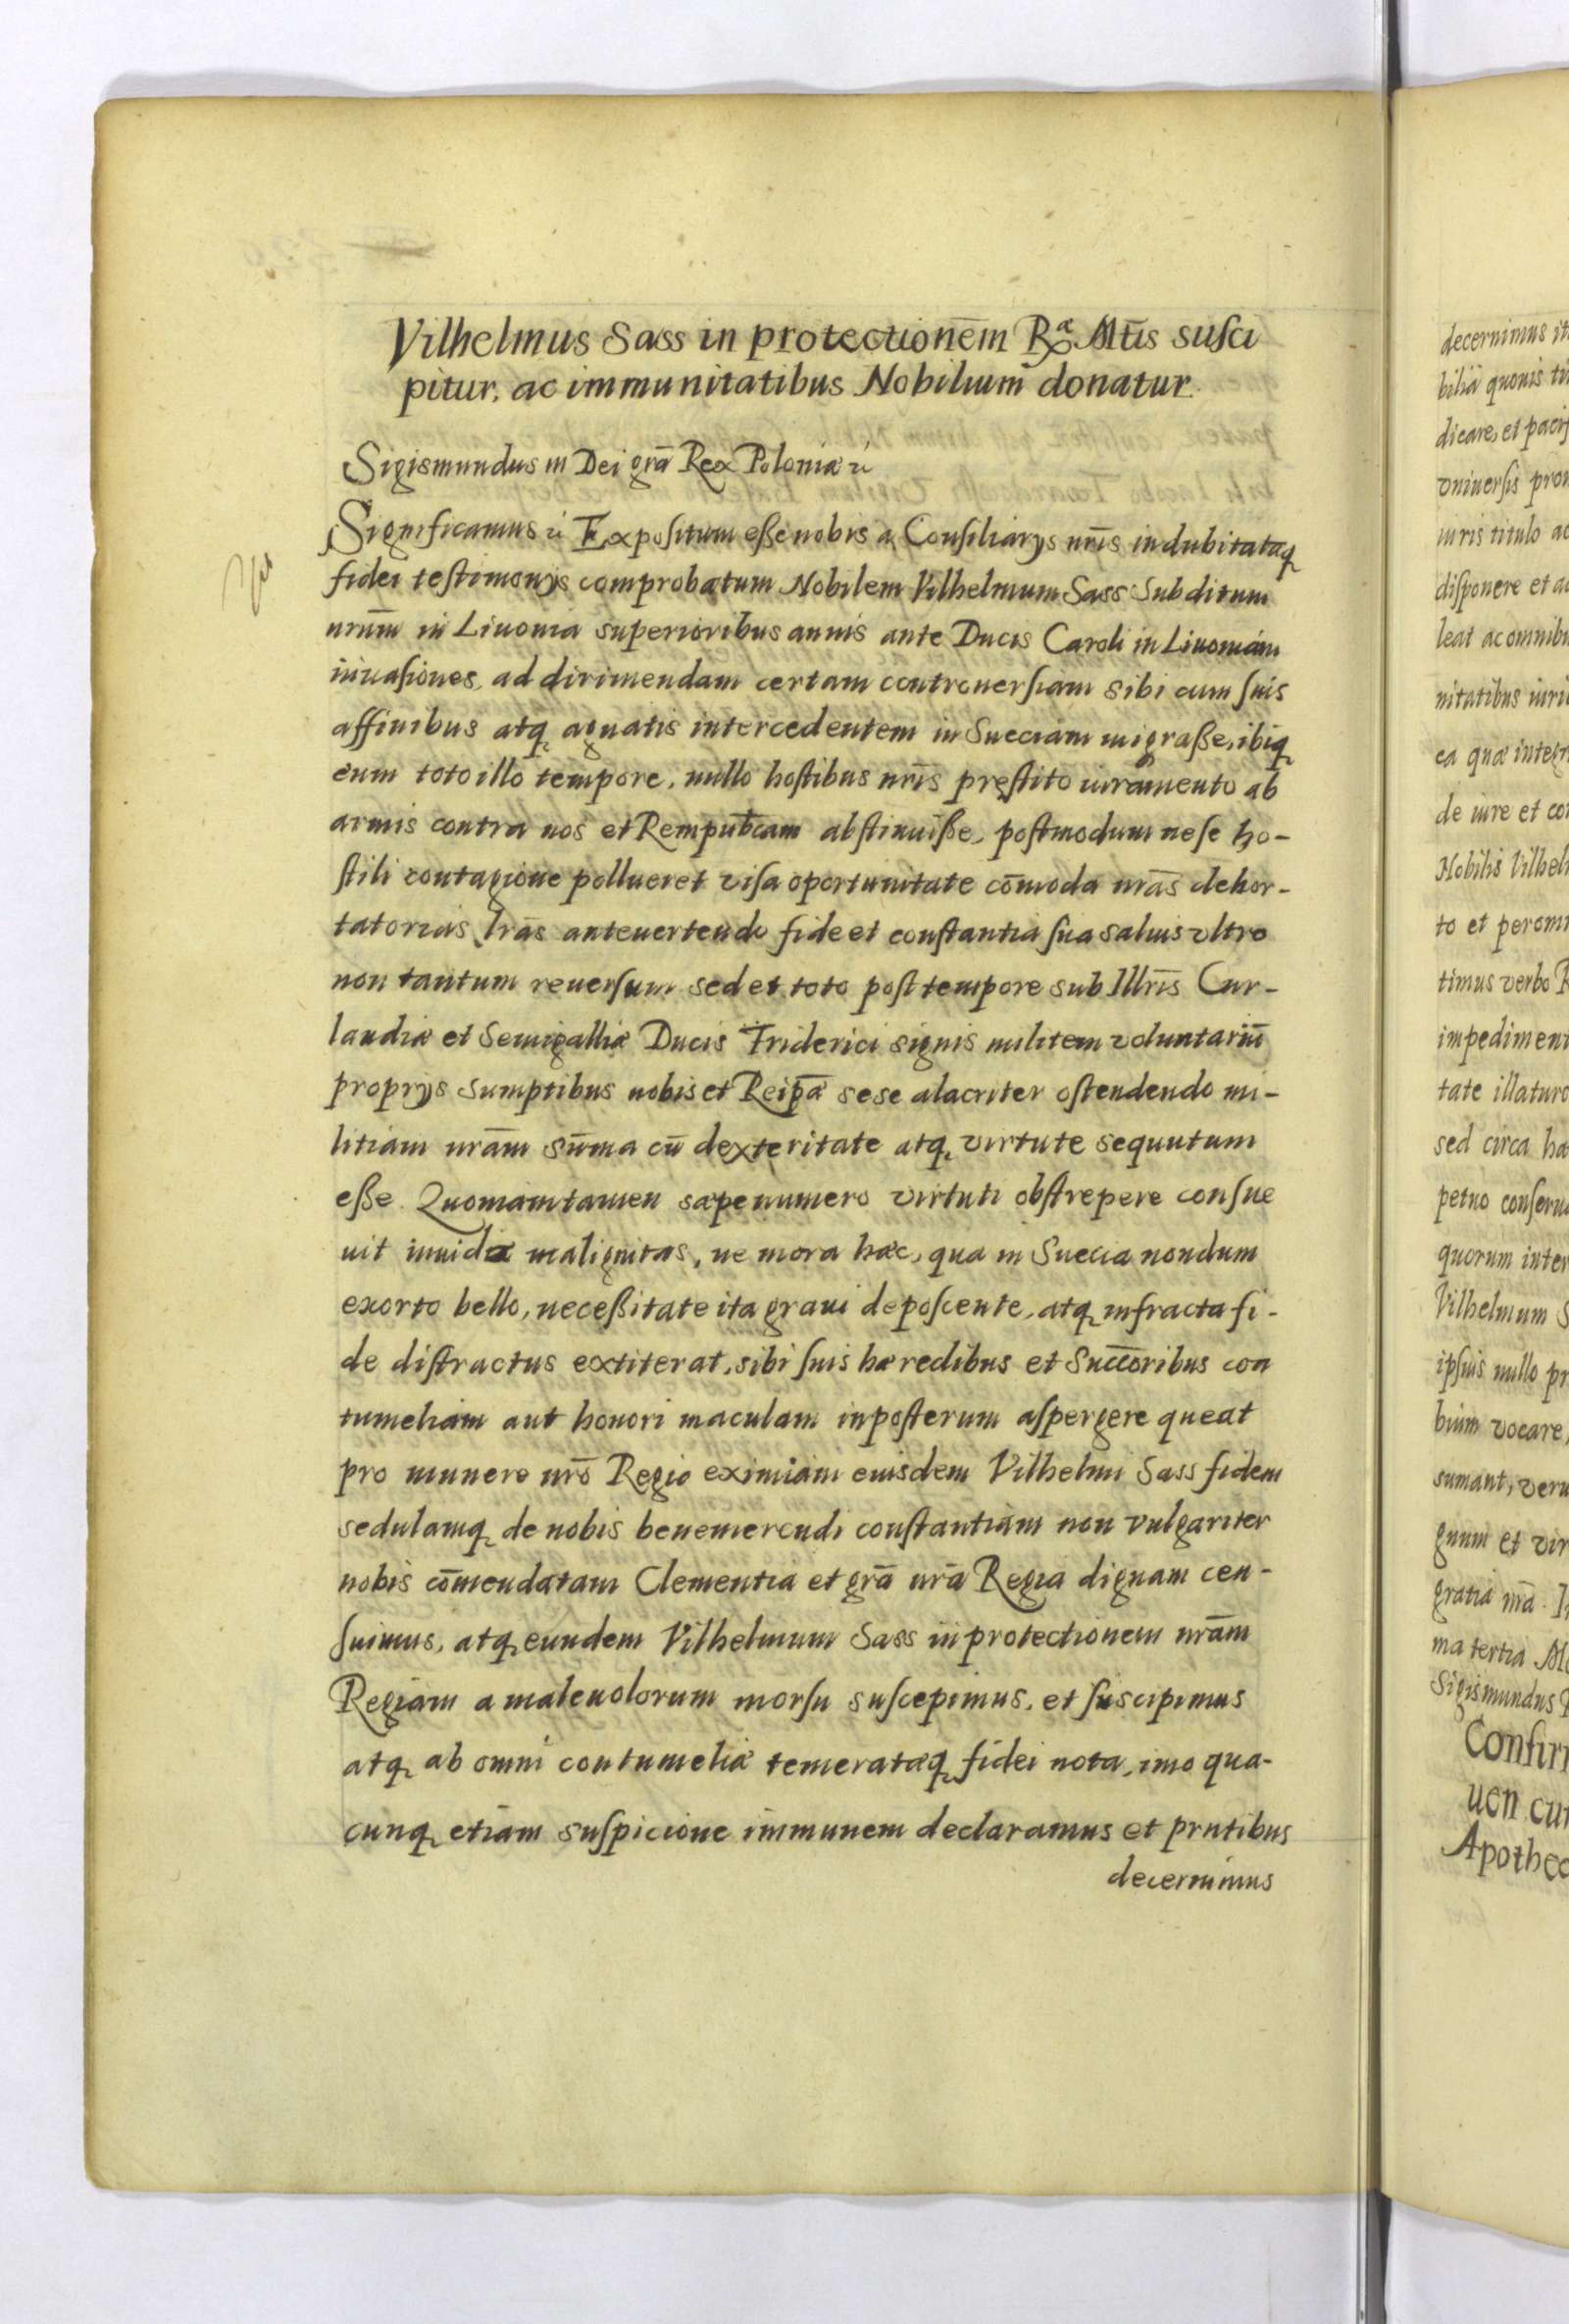 Vilhelmus Sass in protectionem̄ Ræ Mtis suſci
pitur, ac immunitatibus Nobilium donatur.
Sigismundus III Dei grā Rex Poloniæ
Significamus Expositum eße nobis a Consiliarys nr̄is indubitatæq
fidei teſtimonijs comprobatum Nobilem Vilhelmum Sass Subditum
nrūm in Liuonia superioribus annis ante Ducis Caroli in Liuoniam
inuaſiones, ad dirimendam certam controuerſiam sibi cum ſuis
affinibus atq agnatis intercedentem in Sueciam migraße, ibiq
eum toto illo tempore, nullo hoſtibus nr̄is pręſtito iuramento ab
armis contra nos et Rempub̄cam abſtinuiße, poſtmodum ne ſe ho-
ſtili contagione pollueret viſa oportunitate com̄oda nrās dehor-
tatorias lrās anteuertendo fide et conſtantia ſua saluis vltro
non tantum reuerſum sed et toto poſt tempore sub Illr̄is Cur-
landiæ et Semigalliæ Ducis Friderici signis militem voluntariū
proprijs sumptibus nobis et Reipæ sese alacriter oſtendendo mi-
litiam nrām sūma cū dexteritate atq virtute sequutum
eße. Quoniam tamen sæpenumero virtuti obſtrepere conſue
uit inuidæ malignitas, ne mora hæc, qua in Suecia nondum
exorto bello, neceßitate ita graui depoſcente, atq infracta fi-
de diſtractus extiterat, sibi ſuis hæredibus et Succ̄oribus con
tumeliam aut honori maculam inpoſterum aſpergere queat
pro munere nrō Regio eximiam eiusdem Vilhelmi Sass fidem
sedulamq de nobis benemerendi conſtantiam non vulgariter
nobis cōmendatam Clementia et grā nrā Regia dignam cen-
ſuimus, atq eundem Vilhelmum Sass in protectionem nrām
Regiam a maleuolorum morſu suſcepimus, et ſuscipimus
atq ab omni contumeliæ temeratæq fidei nota, imo qua-
cunq etiam suſpicione immunem declaramus et prntibus
decernimus
decernimus it
bilia quouis ti
dicare, et paciſ
vniuerſis pro
iuris titulo ac
diſponere et a
leat ac omnib
nitatibus iuri
ea quæ integr
de iure et co
Nobilis Vilhel
to et per om
timus verbo R
impediment
tate illatur
sed circa hæ
petuo conſeru
quorum inter
Vilhelmum S
ipſius nullo pr
bium vocare,
sumant, veru
gnum et vir
gratia nrā. I
ma tertia M
Sigismundus R
Confir
uen cu
Apothec